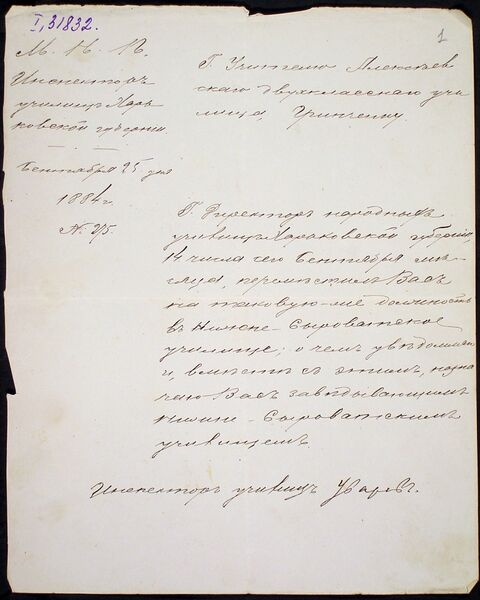 I, 31832.
1
М. Н. П.
Инспекторъ
училищъ Харь-
ковской губернии.
Сентября 25 дня
1884 г.
№ 215.
Г. Учителю Алексѣев
скаго двухкласснаго учи
лища, Гринченку.
Г. Директоръ народныхъ
училищъ Харьковской губерніи,
14 числа сего Сентября мѣ-
сяца, перемѣстилъ Васъ
на таковую-же должность
въ Нижне-Сыроватское
училище; о чемъ увѣдомляю
и, вмѣстѣ съ этимъ, назна
чаю Васъ завѣдывающимъ
Нижне-Сыроватскимъ
училищемъ.
Инспекторъ училищъ